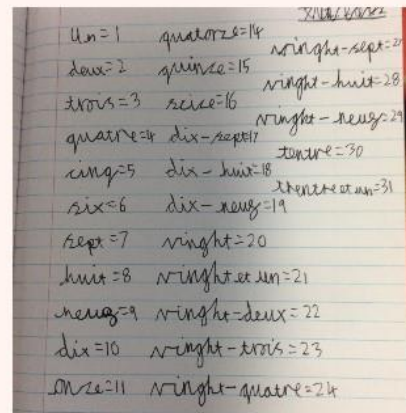 un=1
deux=2
trois=3
quatre=4
cinq=5
six=6
sept=7
huit=8
neug=9
dix=10
onze=11
quatorze=14
quinze=15
seise=16
dix-sept=17
dix-huit=18
dix-neug=19
vinght=20
vinght et un=21
vinght-deux=22
vinght-trois=23
vinght-quatre=24
vinght-sept=27
vinght-huit=28
vinght-neug=29
tentre=30
trentre et un=31